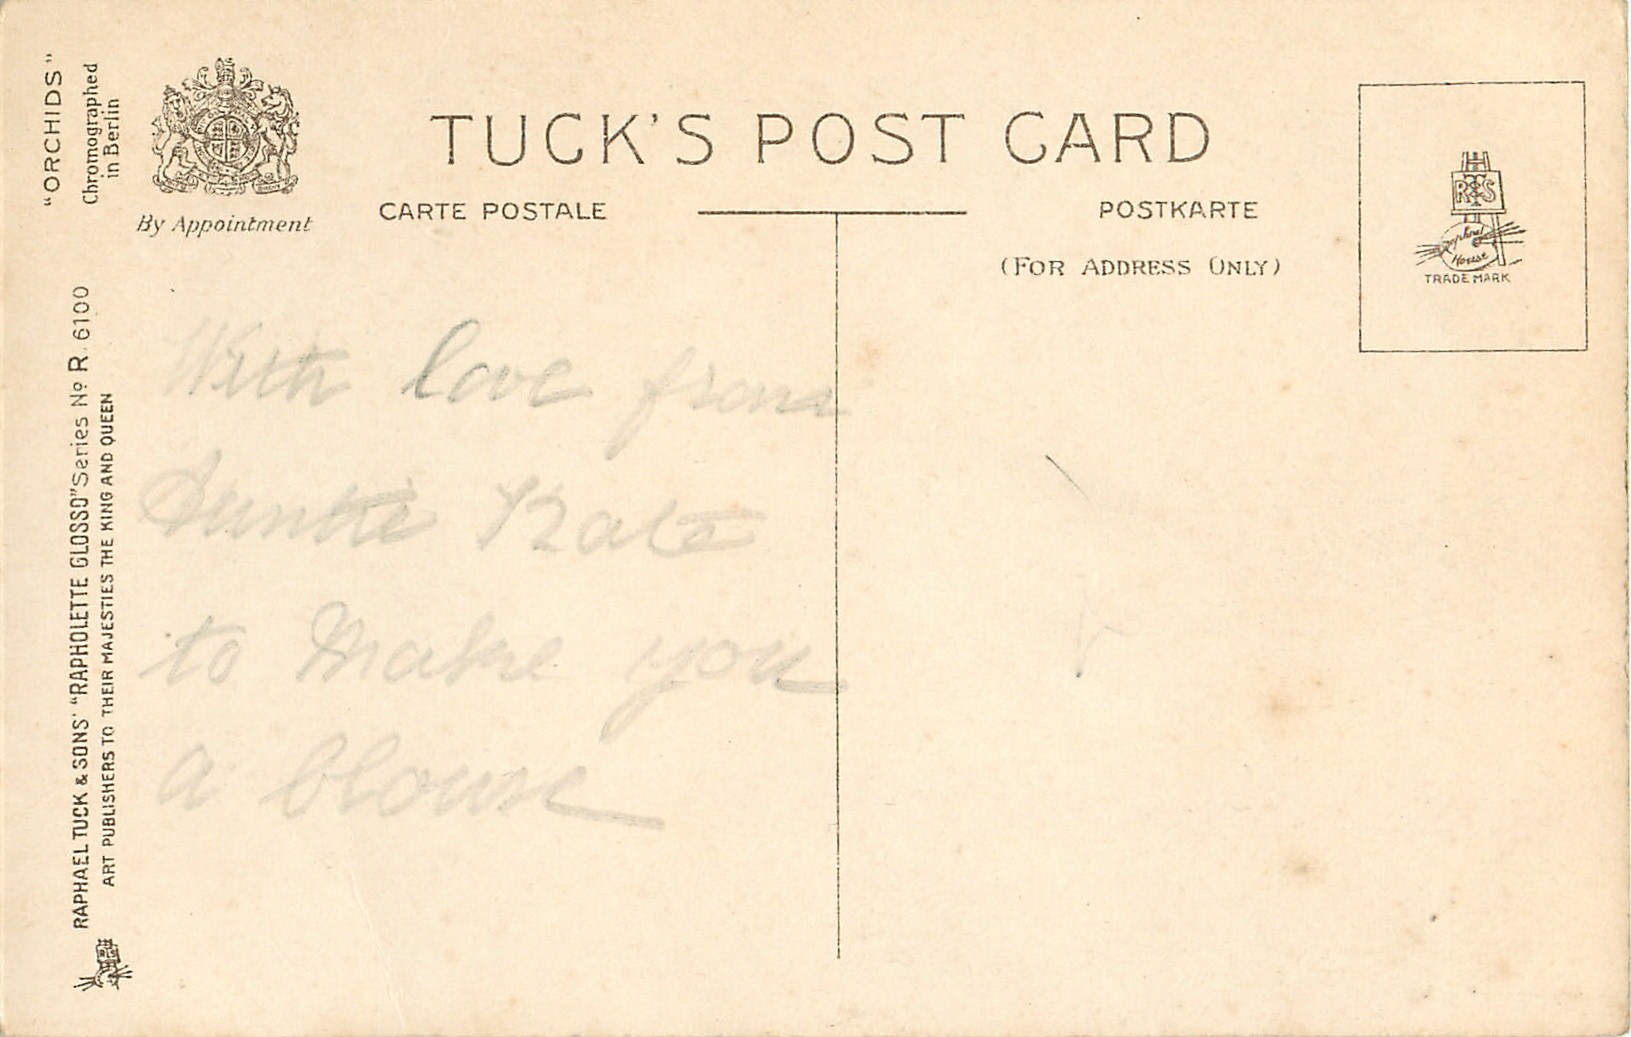 "ORCHIDS"
Chromographed
in Berlin
By Appointment
TUCK'S POST CARD
CARTE POSTALE
POSTKARTE
(FOR ADDRESS ONLY)
R T & S
Raphael
House
TRADE MARK
RAPHAEL TUCK & SONS' "RAPHOLETTE GLOSSO" Series No R. 6100
ART PUBLISHERS TO THEIR MAJESTIES THE KING AND QUEEN
With love from
Auntie Kate
to make you
a blouse